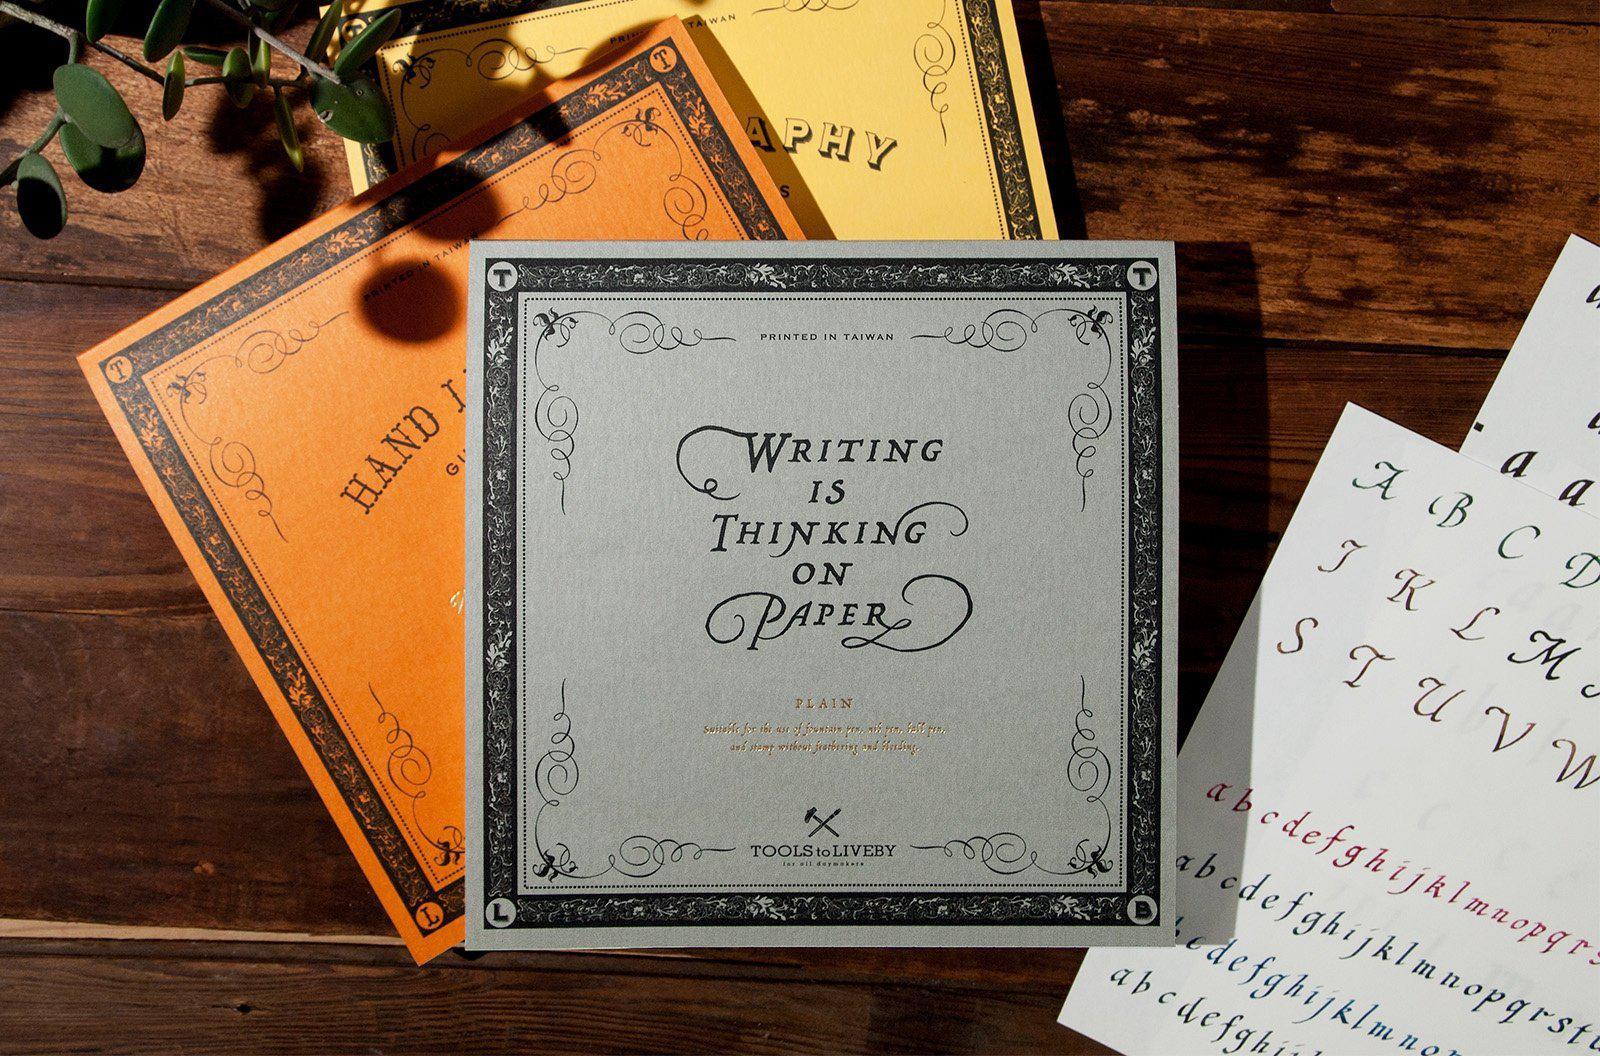 PRINTED IN TAIWAN
APHY
S
T
T
PRINTED IN TAIWAN
HAND
L
T
T
PRINTED IN TAIWAN
WRITING
IS
THINKING
ON
PAPER
PLAIN
Suitable for the use of fountain pen, nib pen, ball pen,
and stamp without feathering and bleeding.
TOOLS to LIVEBY
for all daymakers
L
B
a
a a
A B C D
J K L M
S T U V W
a b c d e f g h i j k l m n o p q r s
a b c d e f g h i j k l m n o p q r s t u
c d e f g h i j k l m n o p q r
a b c d e f g h i j k l m n o